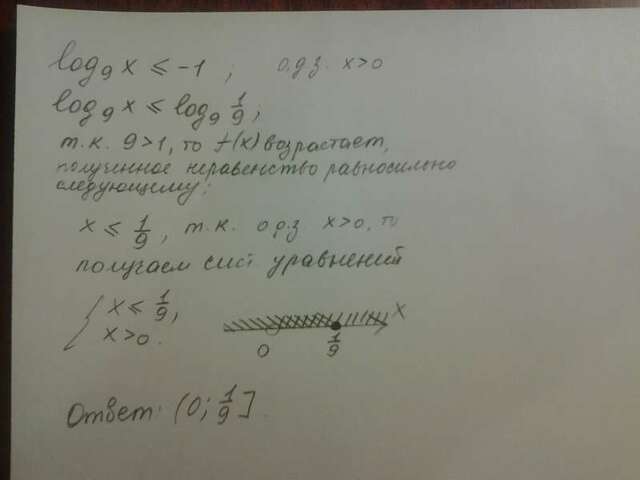 log₉ x ≤ -1 ; о.д.з. x>0
log₉ x ≤ log₉ 1/9 ;
т.к. 9>1, то f(x) возрастает,
полученное неравенство равносильно
следующему:
x ≤ 1/9 , т.к. о.д.з x>0, то
получаем сист. уравнений
{ x ≤ 1/9,
x>0.
x
0 1/9
Ответ: (0; 1/9].